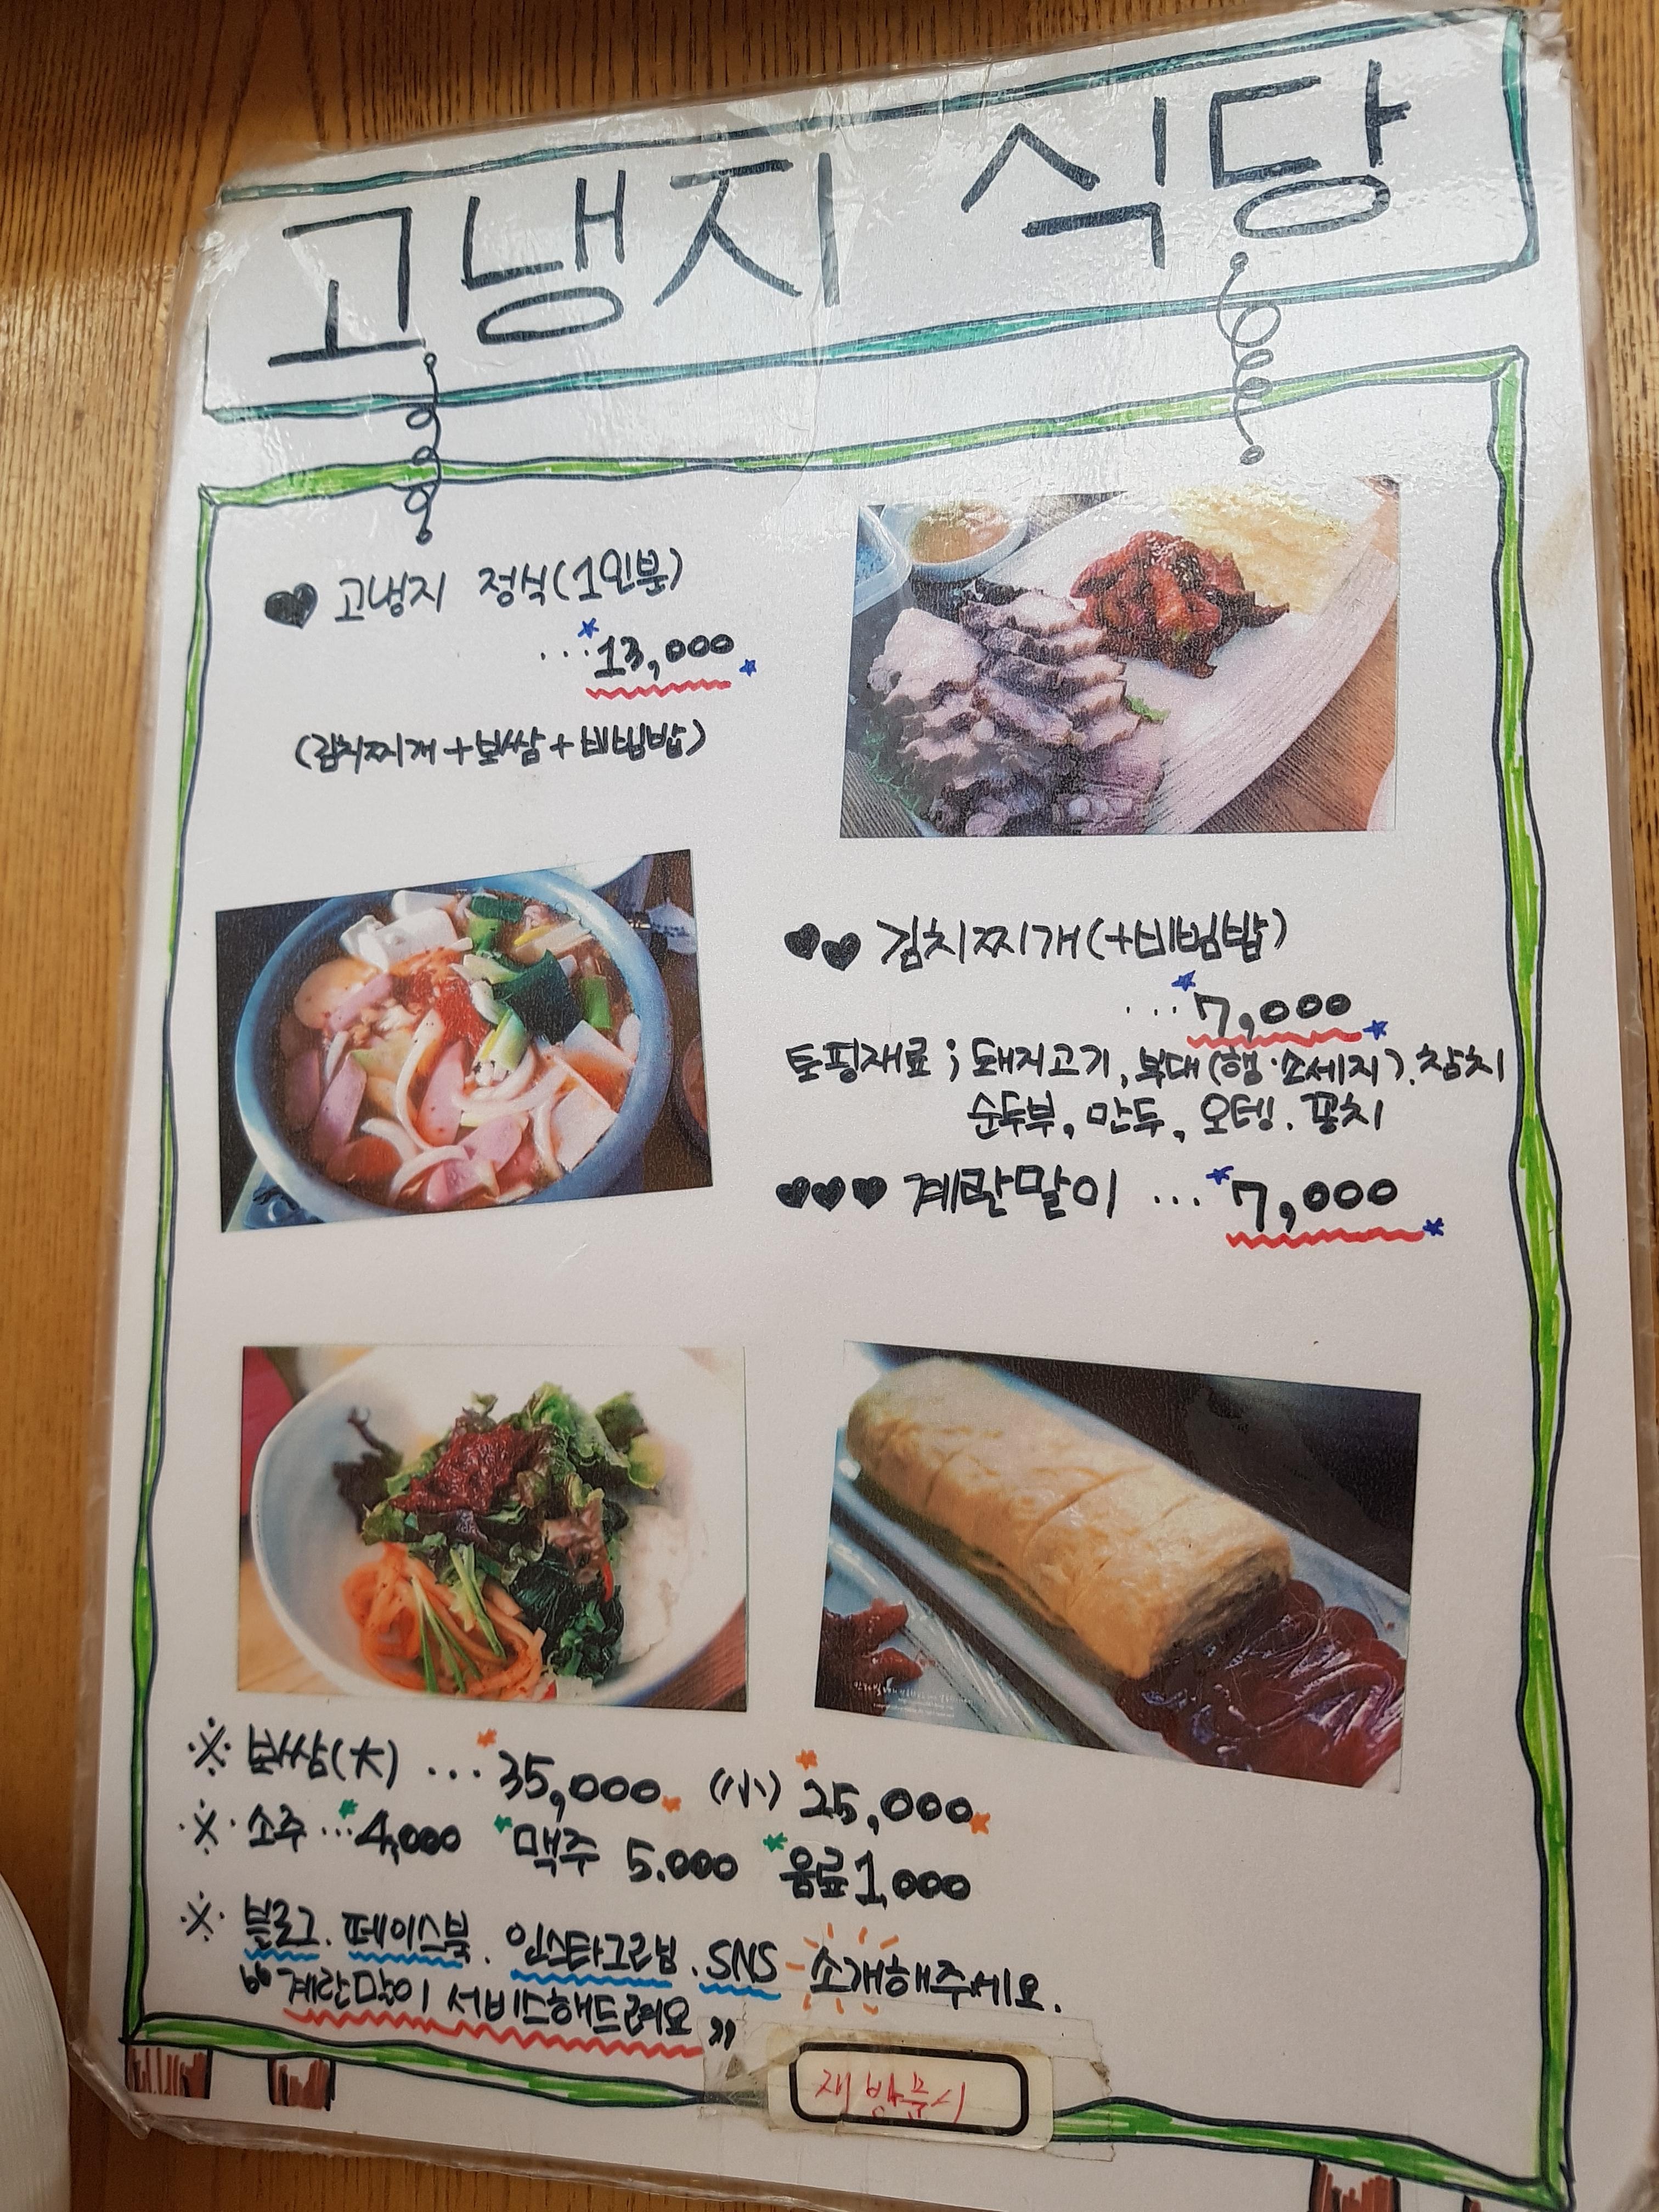 고냉지 식당
고냉지 정식(1인분)
...13,000
(김치찌개+보쌈+비빔밥)
김치찌개(+비빔밥)
...7,000
토핑재료; 돼지고기, 부대(햄·소세지). 참치
순두부, 만두, 오뎅. 꽁치
계란말이 ... 7,000
※ 보쌈(大) ... 35,000 (小) 25,000
※ 소주 ... 4,000 맥주 5.000 음료 1,000
※ 블로그. 페이스북. 인스타그램. SNS 소개해주세요.
"계란말이 서비스해드려요"
재방문시